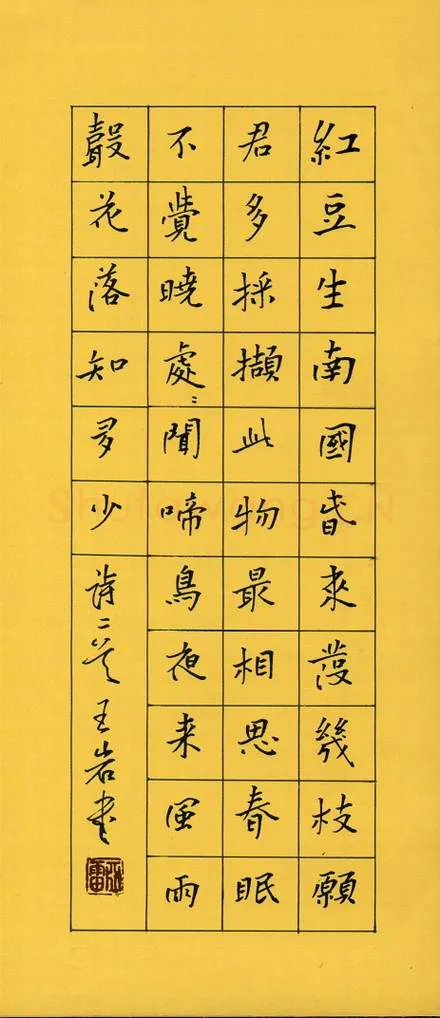 紅豆生南國旾來發幾枝願
君多採擷此物最相思春眠
不覺曉處〻聞啼鳥夜来風雨
聲花落知多少詩二首王岩书